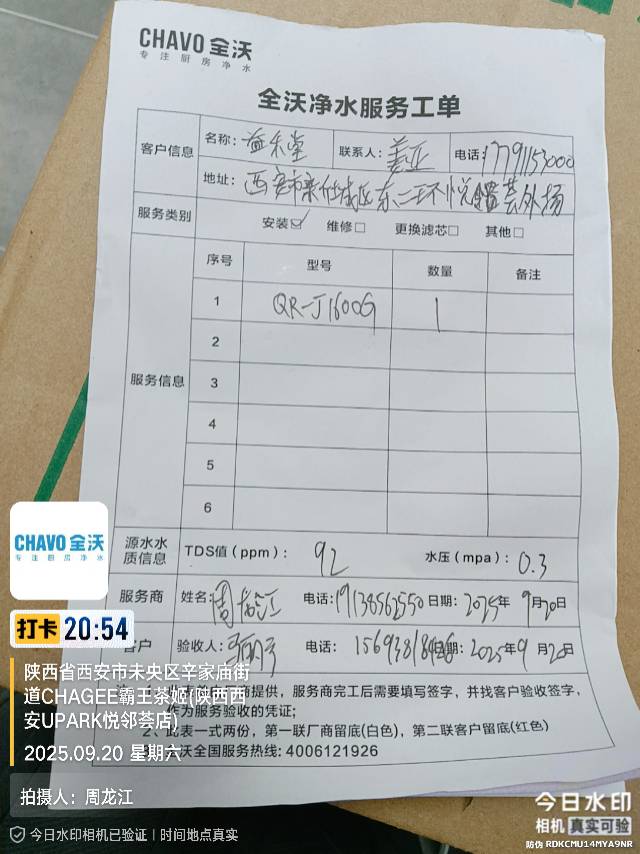 CHAVO 全沃
专注厨房净水
全沃净水服务工单
客户信息 名称：益禾堂 联系人：姜亚 电话：17791153000
地址：西安市 东二环悦 荟外场
服务类别 安装☑ 维修□ 更换滤芯□ 其他□
服务信息 序号 型号 数量 备注
1 QR-J1600G 1
2
3
4
5
6
源水水质信息 TDS值（ppm）：92 水压（mpa）：0.3
服务商 姓名：周龙江 电话：19138562550 日期：2025年9月20日
客户 验收人： 电话： 日期：2025年9月20日
商提供，服务商完工后需要填写签字，并找客户验收签字，
作为服务验收的凭证；
2、此表一式两份，第一联厂商留底(白色)，第二联客户留底(红色)
沃全国服务热线：4006121926
CHAVO 全沃
专注厨房净水
打卡 20:54
陕西省西安市未央区辛家庙街
道CHAGEE霸王茶姬(陕西西
安UPARK悦邻荟店)
2025.09.20 星期六
拍摄人：周龙江
今日水印相机已验证｜时间地点真实
今日水印
相机 真实可验
防伪 RDKCMU14MYA9NR